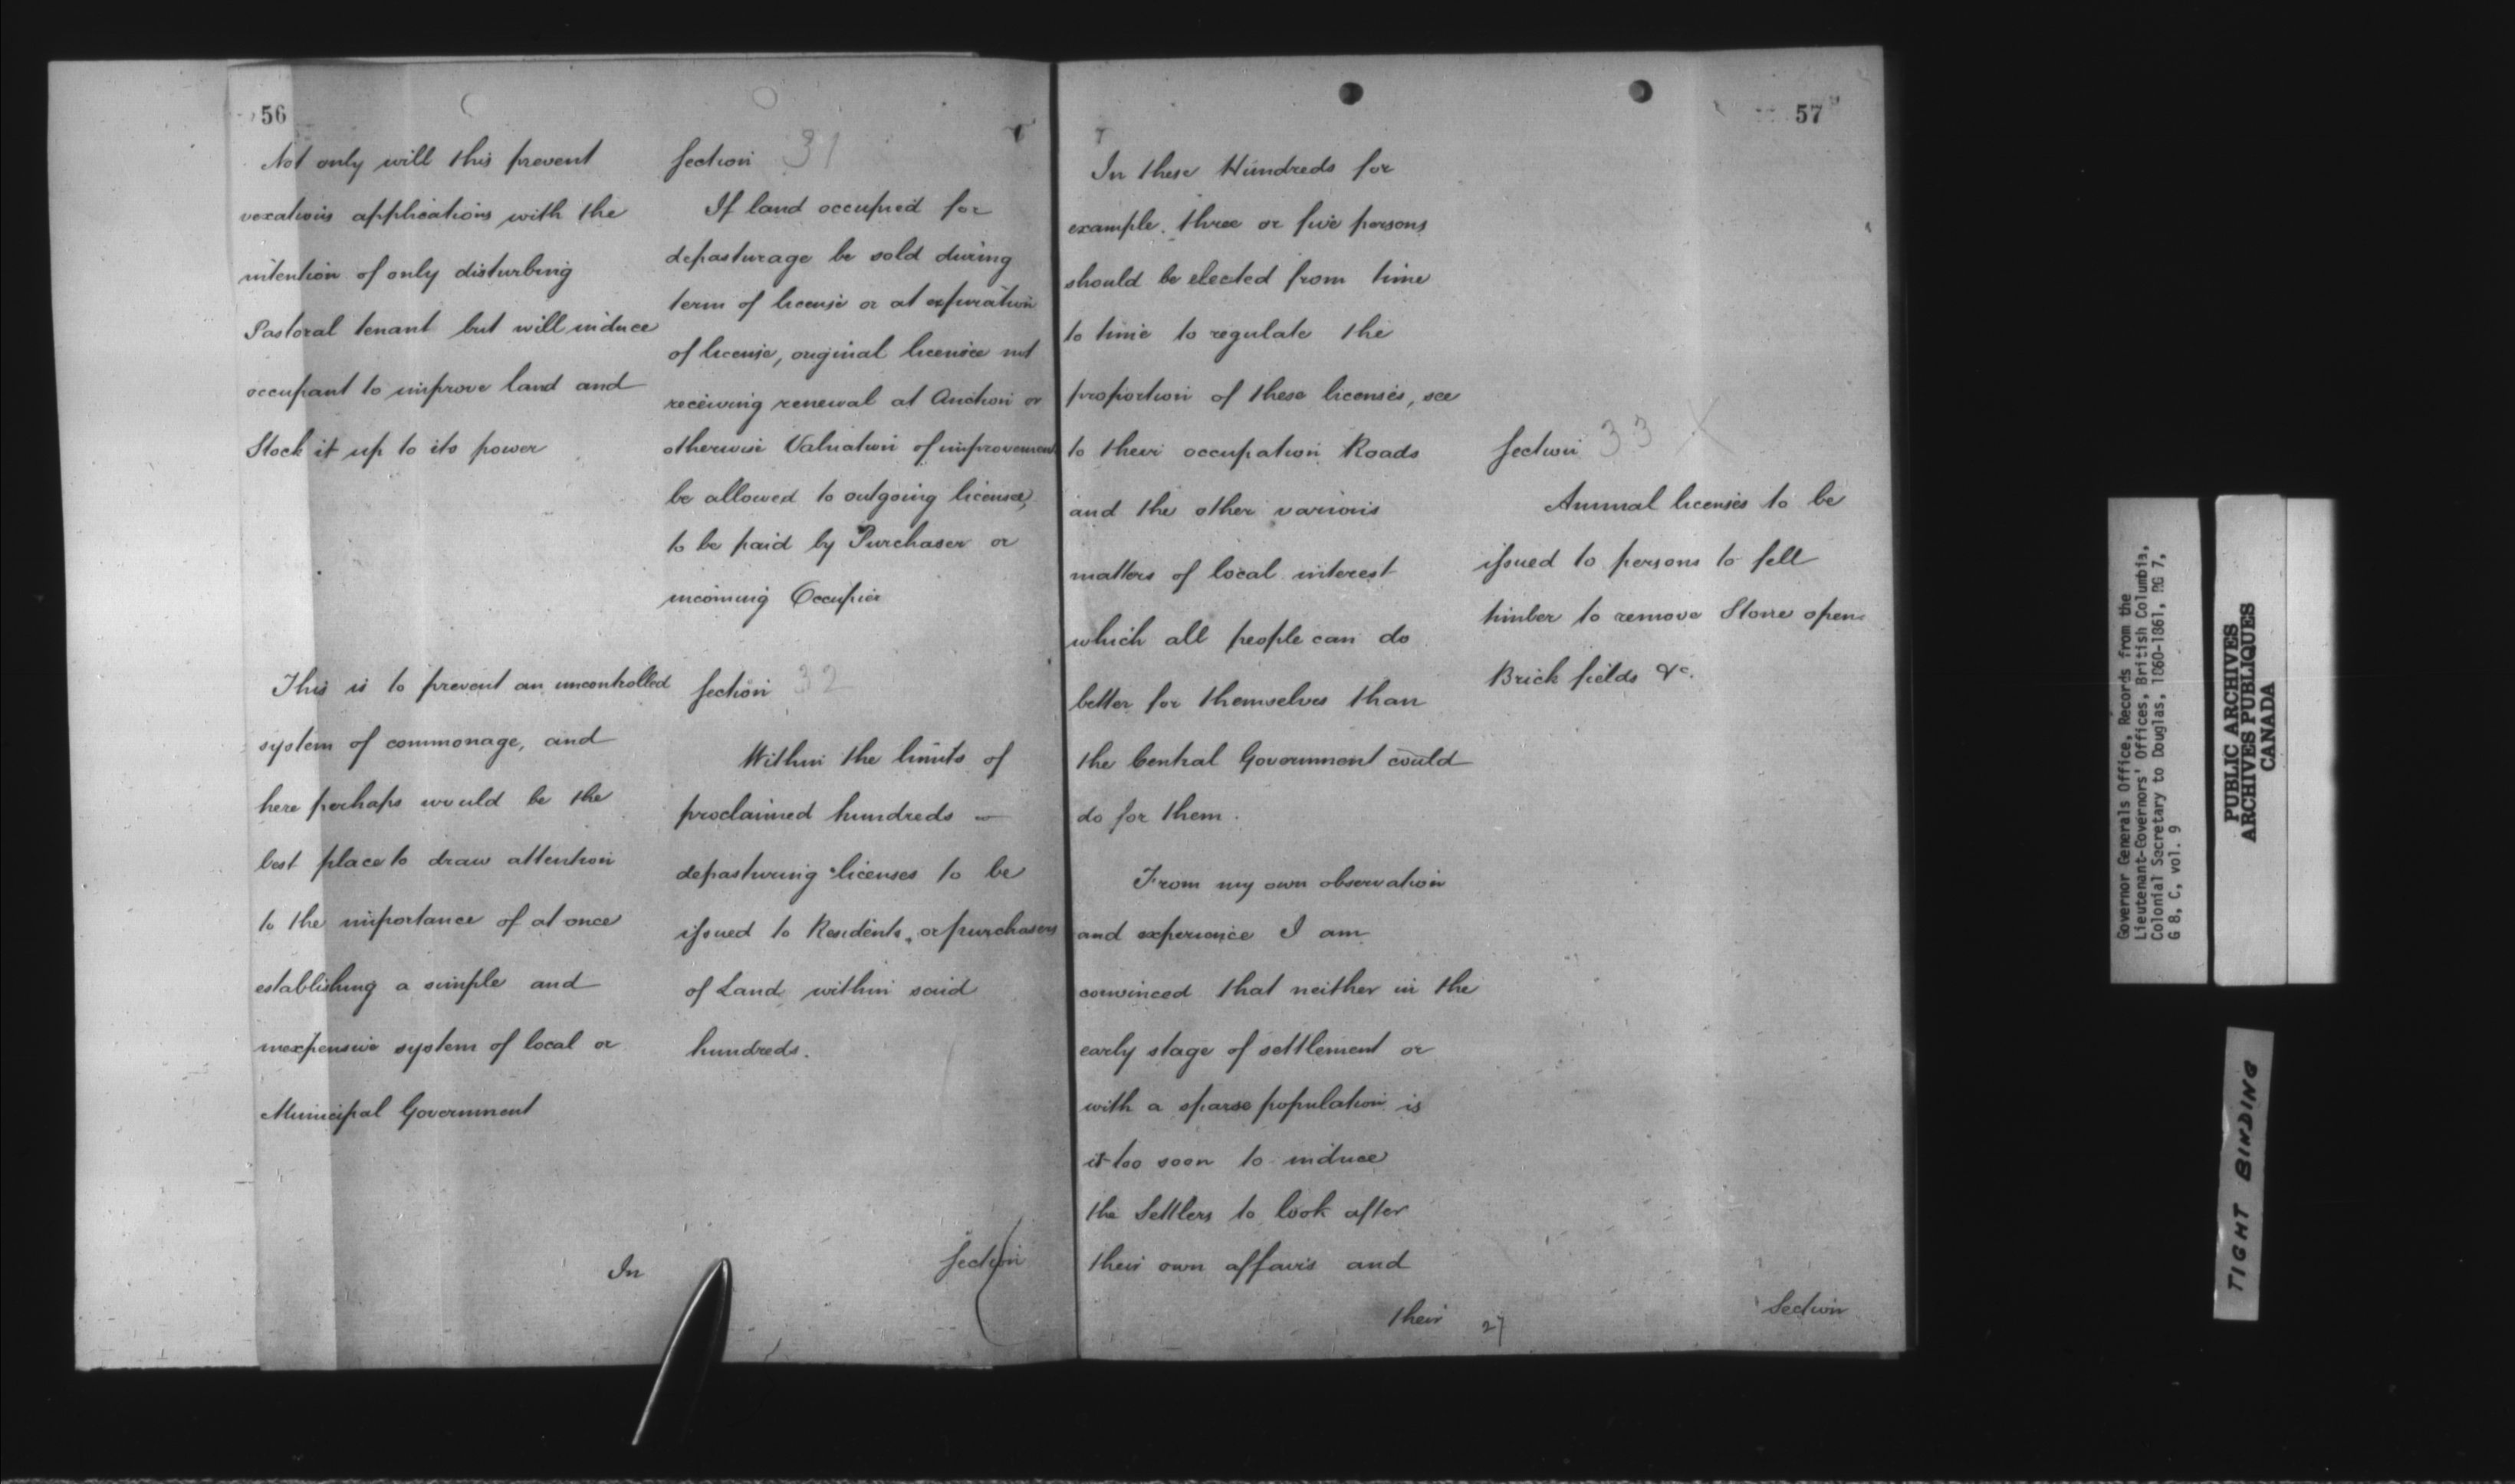 56
Not only will this prevent
vexatious applications with the
intention of only disturbing
Pastoral tenant but will induce
occupant to improve land and
Stock it up to its power
This is to prevent an uncontrolled
system of commonage, and
here perhaps would be the
best place to draw attention
to the importance of at once
establishing a simple and
inexpensive system of local or
Municipal Government
In
Section 31
If land occupied for
depasturage be sold during
term of license or at expiration
of license, original licensee not
receiving renewal at Auction or
otherwise Valuation of improvement
be allowed to outgoing licensee,
to be paid by Purchaser or
incoming Occupier
Section 32
Within the limits of
proclaimed hundreds —
depasturing licenses to be
issued to Residents, or purchasers
of Land within said
hundreds.
Section
57
In these Hundreds for
example. three or five persons
should be elected from time
to time to regulate the
proportion of these licenses, see
to their occupation Roads
and the other various
matters of local interest
which all people can do
better for themselves than
the Central Government could
do for them.
From my own observation
and experience I am
convinced that neither in the
early stage of settlement or
with a sparse population is
it too soon to induce
the Settlers to look after
their own affairs and
their 27
Section 33 X
Annual licenses to be
issued to persons to fell
timber to remove Stone open
Brick fields &c.
Section
Governor Generals Office, Records from the
Lieutenant-Governors' Offices, British Columbia,
Colonial Secretary to Douglas, 1860-1861, RG 7,
G 8, C, vol. 9
PUBLIC ARCHIVES
ARCHIVES PUBLIQUES
CANADA
TIGHT BINDING